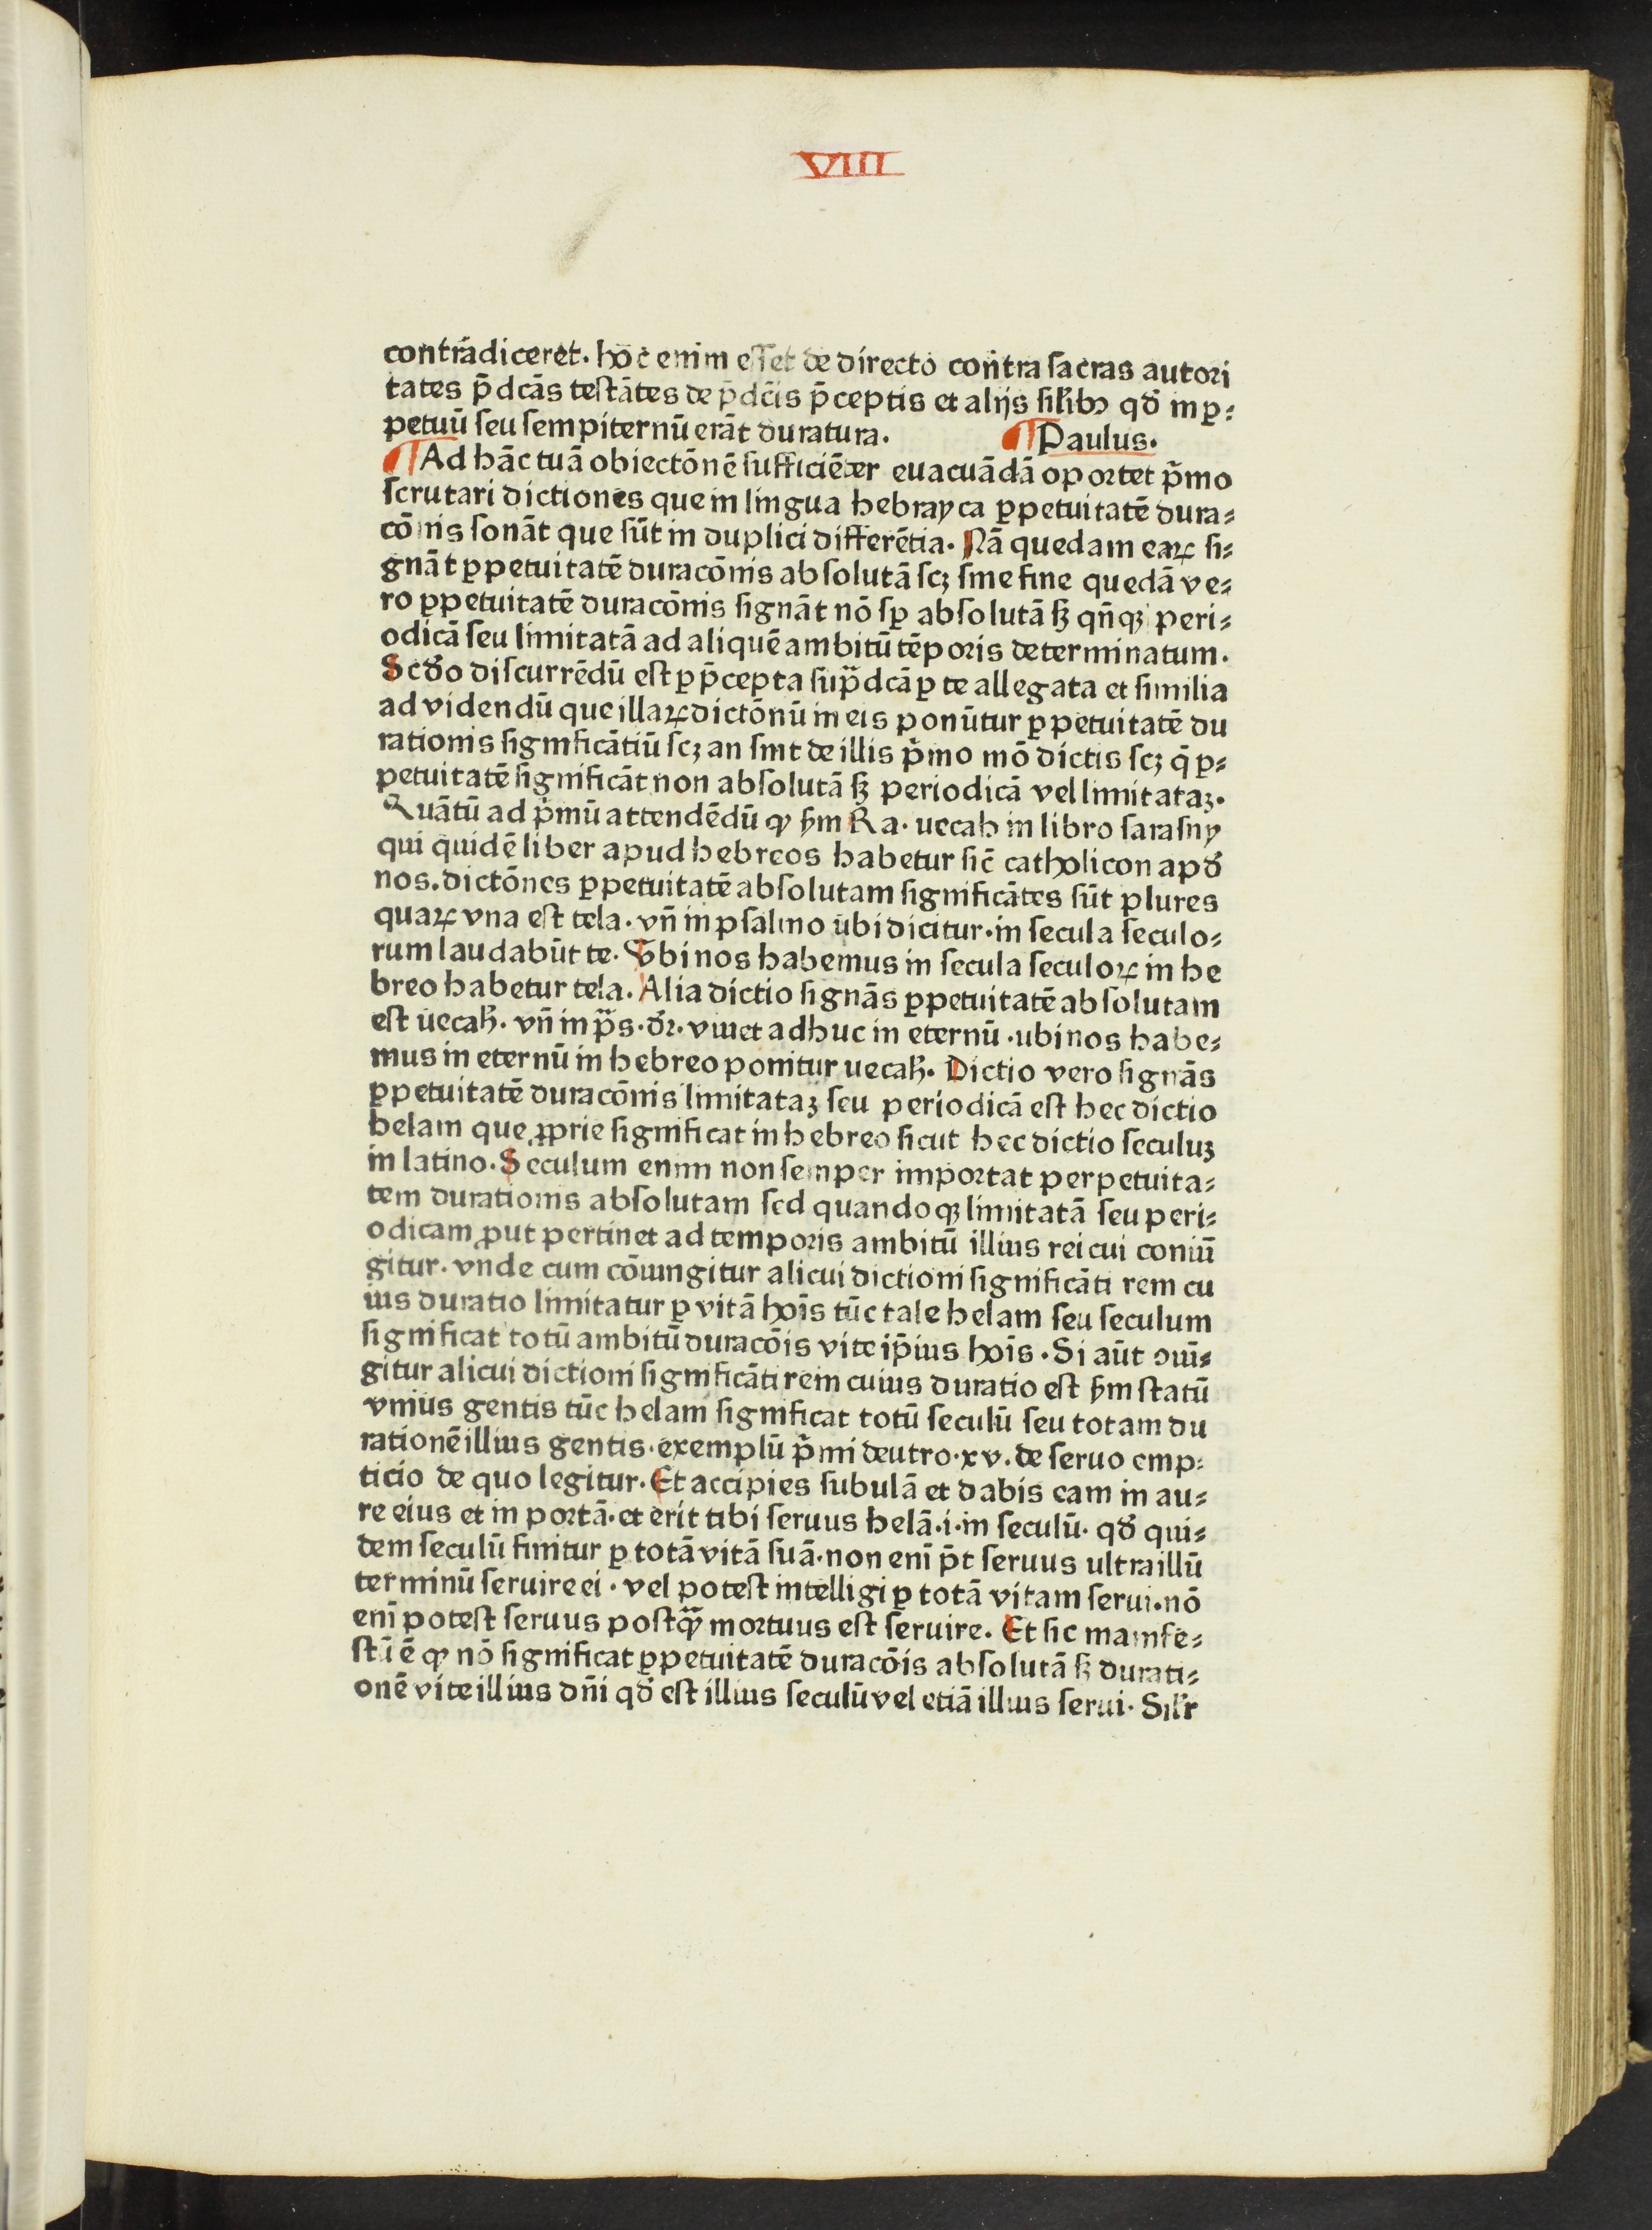 VIII
contrādiceret. hoc enim esset de directo contra sacras autori
tates p̄dcās testātes de p̄dcīs p̄ceptis et alijs sil̄ibꝰ qđ in ꝑ⸗
petuū seu sempiternū erāt duratura. ¶ Paulus.
¶ Ad hāc tuā obiectōnē sufficiēter euacuādā oportet p̄mo
scrutari dictiones que in lingua hebrayca ꝑpetuitatē dura⸗
cōnis sonāt que sūt in duplici differētia. Nā quedam eaꝝ si⸗
gnāt ꝑpetuitatē duracōnis absolutā scꝫ sine fine quedā ve⸗
ro ꝑpetuitatē duracōnis signāt nō sꝑ absolutā sꝫ qn̄qꝫ peri⸗
odicā seu limitatā ad aliquē ambitū tēporis determinatum.
Scđo discurrēdū est ꝑ p̄cepta sup̄dcā ꝑ te allegata et similia
ad videndū que illaꝝ dictōnū in eis ponūtur ꝑpetuitatē du
rationis significātiū scꝫ an sint de illis p̄mo mō dictis scꝫ q̄ ꝑ⸗
petuitatē significāt non absolutā sꝫ periodicā vel limitataꝫ.
Quātū ad p̄mū attendēdū ꝙ ẜm Ra. uecah in libro sarasny
qui quidē liber apud hebreos habetur sic̄ catholicon apđ
nos. dictōnes ꝑpetuitatē absolutam significātes sūt plures
quaꝝ vna est tela. vn̄ in psalmo ubi dicitur. in secula seculo⸗
rum laudabūt te. Vbi nos habemus in secula seculoꝝ in he
breo habetur tela. Alia dictio signās ꝑpetuitatē absolutam
est uecaħ. vn̄ in p̄s. dr̄. viuet adhuc in eternū. ubi nos habe⸗
mus in eternū in hebreo ponitur uecaħ. Dictio vero signās
ꝑpetuitatē duracōnis limitataꝫ seu periodicā est hec dictio
helam que ꝓprie significat in hebreo sicut hec dictio seculuꝫ
in latino. Seculum enim non semper importat perpetuita⸗
tem durationis absolutam sed quandoqꝫ limitatā seu peri⸗
odicam ꝓut pertinet ad temporis ambitū illius rei cui coniū
gitur. vnde cum cōiungitur alicui dictioni significāti rem cu
ius duratio limitatur ꝑ vitā hoīs tūc tale helam seu seculum
significat totū ambitū duracōis vite ip̄ius hoīs. Si aūt ↄiū⸗
gitur alicui dictioni significāti rem cuius duratio est ẜm statū
vnius gentis tūc helam significat totū seculū seu totam du
rationē illius gentis. exemplū p̄mi deutro. xv. de seruo emp⸗
ticio de quo legitur. Et accipies subulā et dabis eam in au⸗
re eius et in portā. et erit tibi seruus helā. i. in seculū. qđ qui⸗
dem seculū finitur ꝑ totā vitā suā. non enī p̄t seruus ultra illū
terminū seruire ei. vel potest intelligi ꝑ totā vitam serui. nō
enī potest seruus postꝙ̄ mortuus est seruire. Et sic manife⸗
stū ē ꝙ nō significat ꝑpetuitatē duracōis absolutā sꝫ durati⸗
onē vite illius dn̄i qđ est illius seculū vel etiā illius serui. Sil̄r